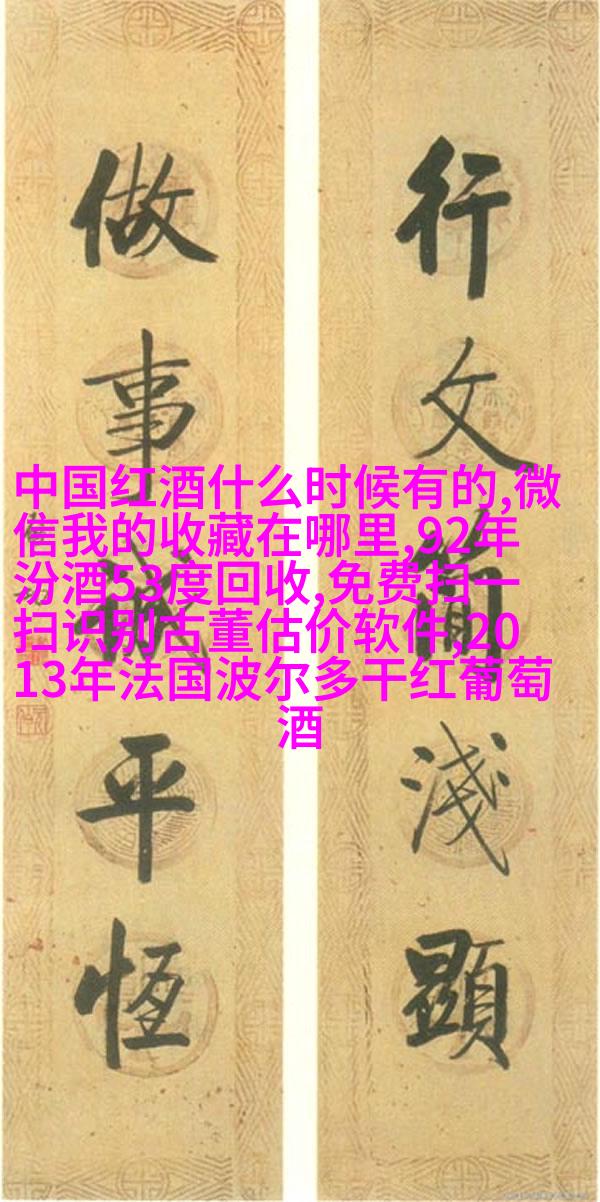 行文簡淺顯
做事誠平恆
中国红酒什么时候有的,微
信我的收藏在哪里,92年
汾酒53度回收,免费扫一
扫识别古董估价软件,20
13年法国波尔多干红葡萄
酒